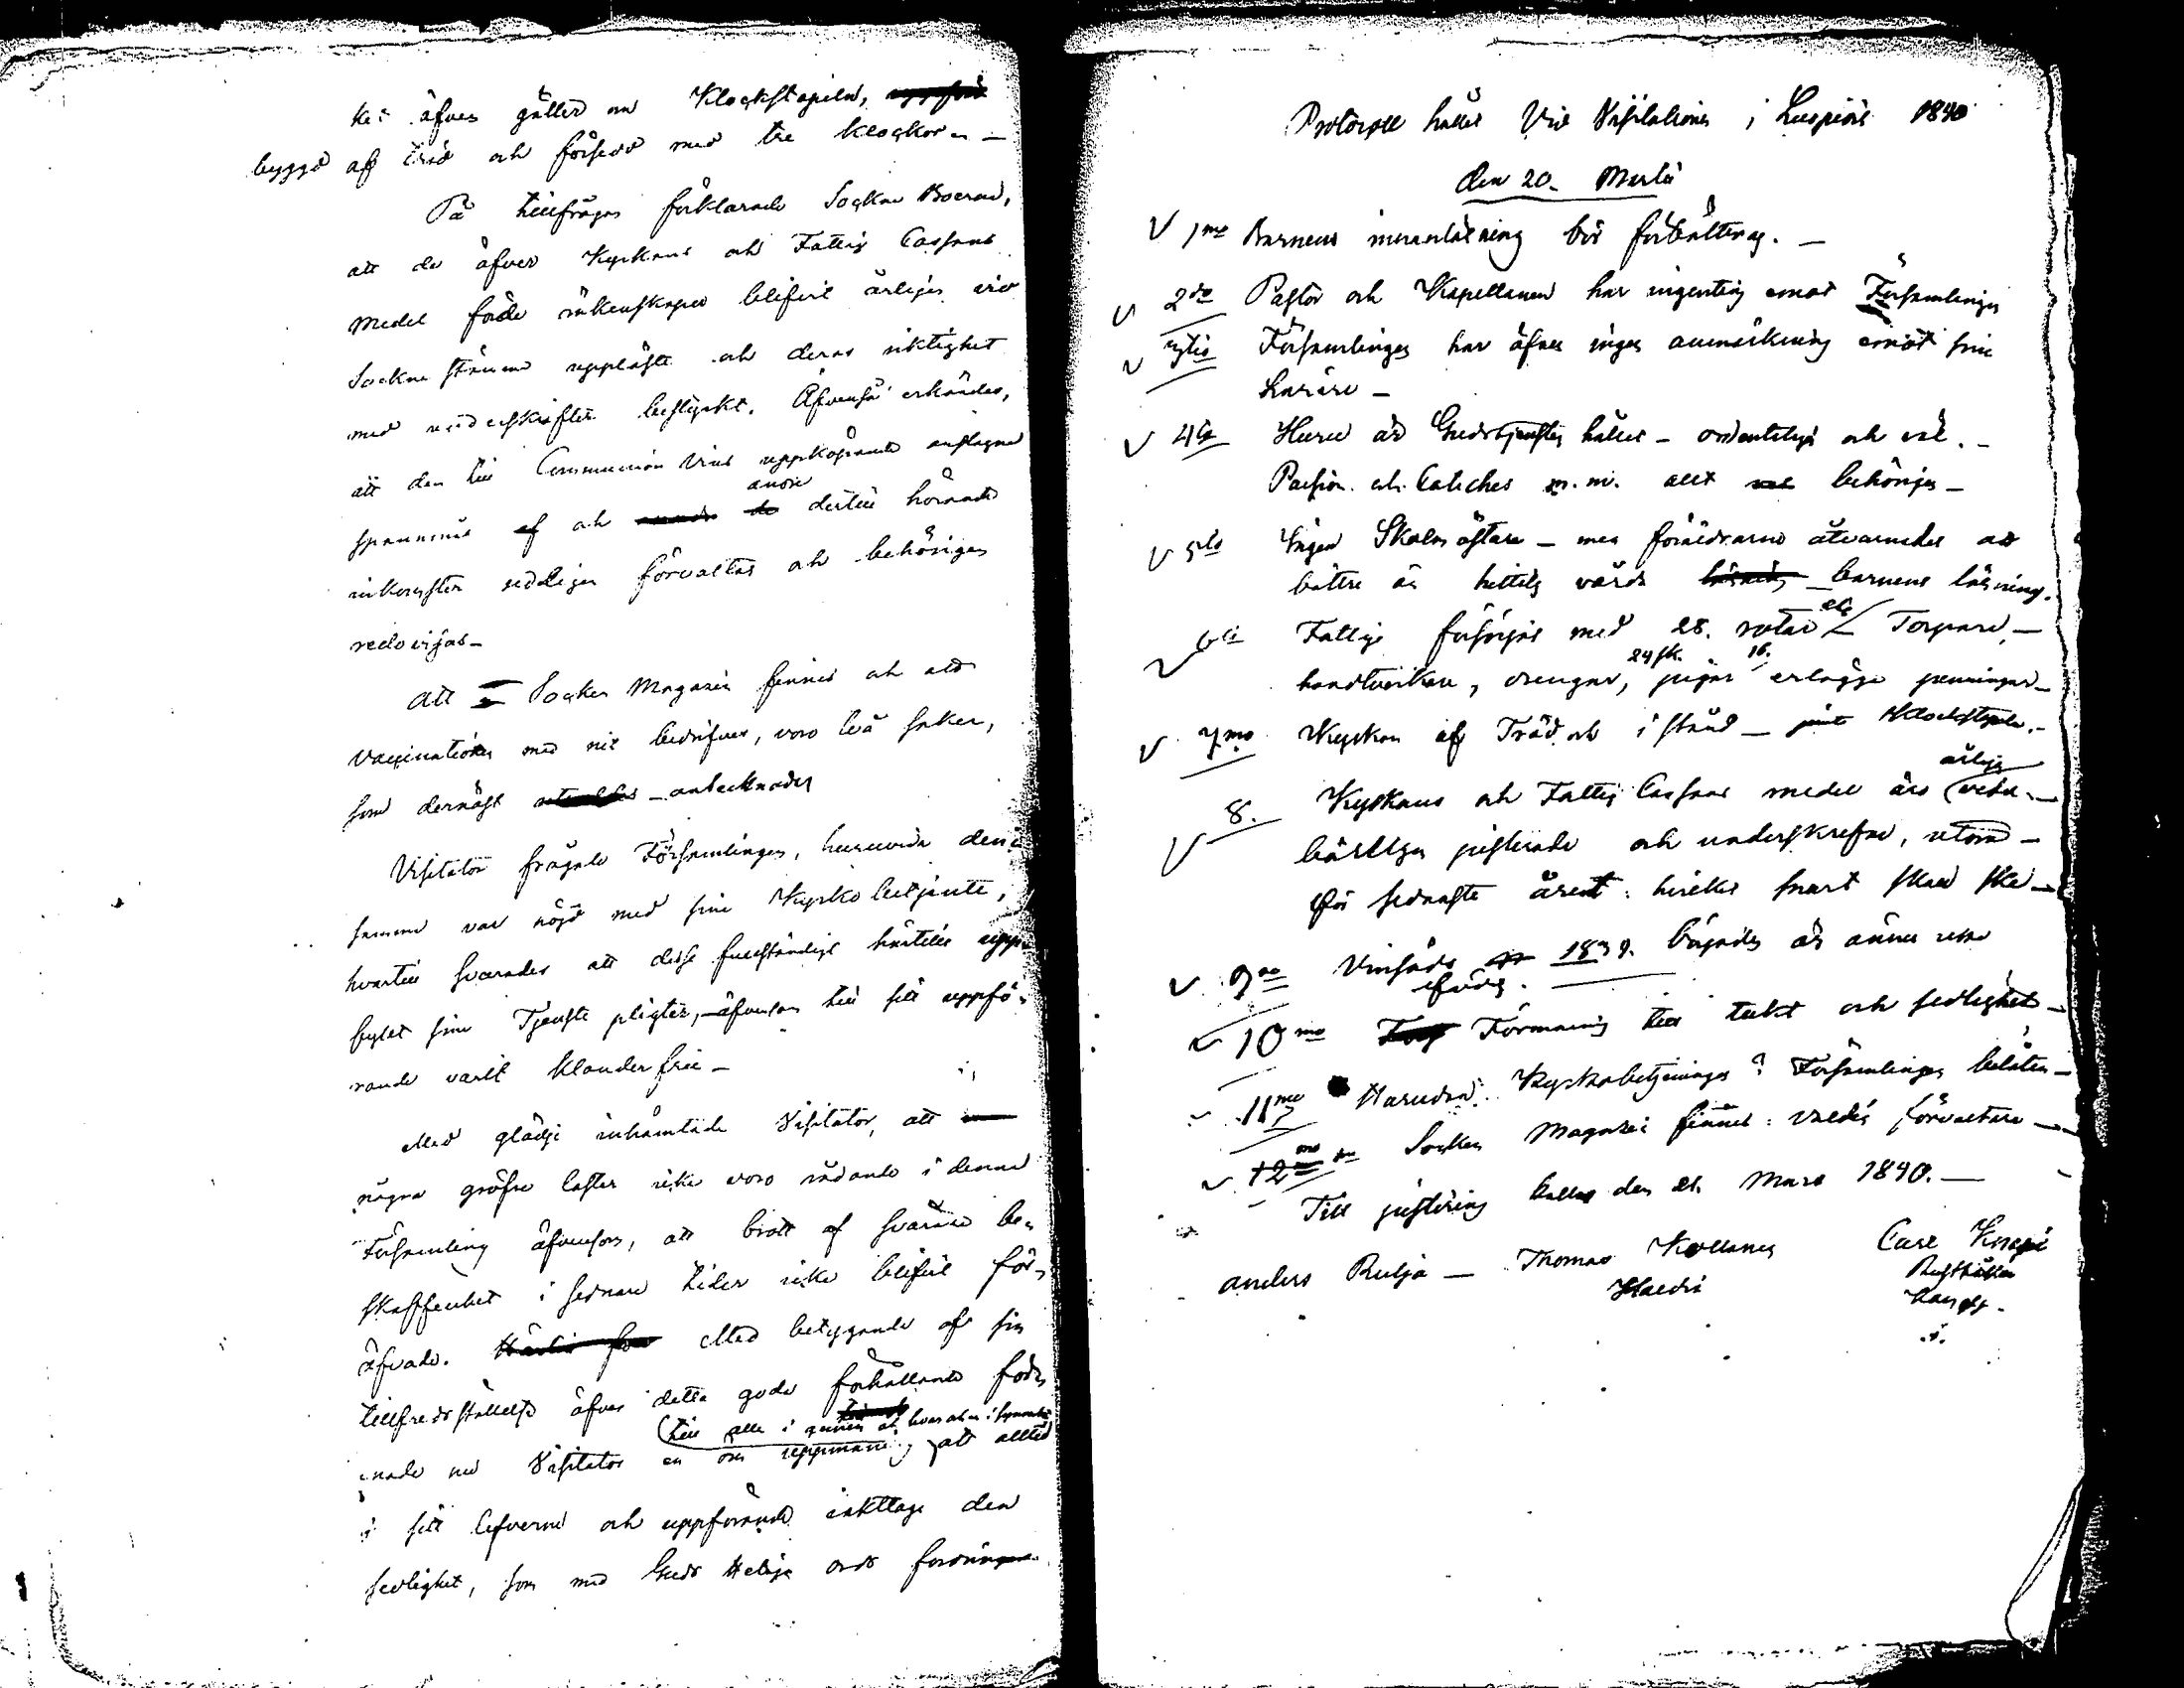 ket äfven gäller om Klockstapeln,
byggd af träd och försedd med tre klockor. –
På tillfrågan förklarade Socken Boerne,
att de öfver Kyrkans och Fattig Cassans
medel förde räkenskaper blifvit årligen vid
Sockne stämma uppläste och deras riktighet
med underskrifter bestyrkt. Äfvenså erkändes,
att den till Communion Vins uppköpande anslagne
spannmål af och andre dertill hörande
inkomster redligen förvaltas och behörigen
redovisas –
Att Socken Magasin finnes och att
Vaccinationen med nit bedrifves, voro två saker,
som dernäst antecknades
Visitator frågade Församlingen, huruvida den
samma var nöjd med sine Kyrko betjente,
hvartill svarades att desse fullständigt härtills upp-
fylt sine Tjenste pligter, äfvensom till sitt uppfö-
rande varit klanderfrie –
Med glädje inhämtade Visitator, att
några gröfre laster icke voro rådande i denna
Församling äfvensom, att brott af svårare be-
skaffenhet i sednare tider icke blifvit för-
öfvade. Med betygande af sin
tillfredsställelse öfver detta goda förhållande
till alla i
nade nu Visitator en öm uppmaning att alltid
i sitt lefverne och uppförande iakttaga den
sedlighet, som med Guds Heliga ords fordringar
Protocoll hållet Vid Visitationen i Luopiois 1840
den 20. Martii
1mo Barnens innanläsning bör förbättras. –
2do Pastor och Kapellanen har ingenting emot Församlingen
3tio Församlingen har äfven ingen anmärkning emot sine
Lärare –
4to Huru är Gudstjensten hållen – ordentligt och väl. –
Passion och Catheches m.m. allt behörigen –
5to Ingen Skolmästare – men föräldrarne åtvarnades att
bättre än hittils vårda barnens läsning.
6to Fattige försörjas med 28. rotar Torpare, –
24 sk. 16.
handtverkare, drengar, pigor erlägge penningar –
7mo Kyrkan af Träd och i stånd – jemte Klockstapeln. –
årligen
8. Kyrkans och Fattig Cassans medel äro veder-
börligen justerade och underskrefne, utom –
för sednaste året: hvilket snart skall ske –
9no Vinsäds 1839. började är ännu
10mo Förmaning till tukt och sedlighet –
11mo Huruvida Kyrkobetjeningen? Församlingen belåten –
12mo Socken Magasin finnes: valdes förvaltare –
Till justering kallas den 21. Mars 1840. –
Anders Rulja – Thomas Kollanen Carl